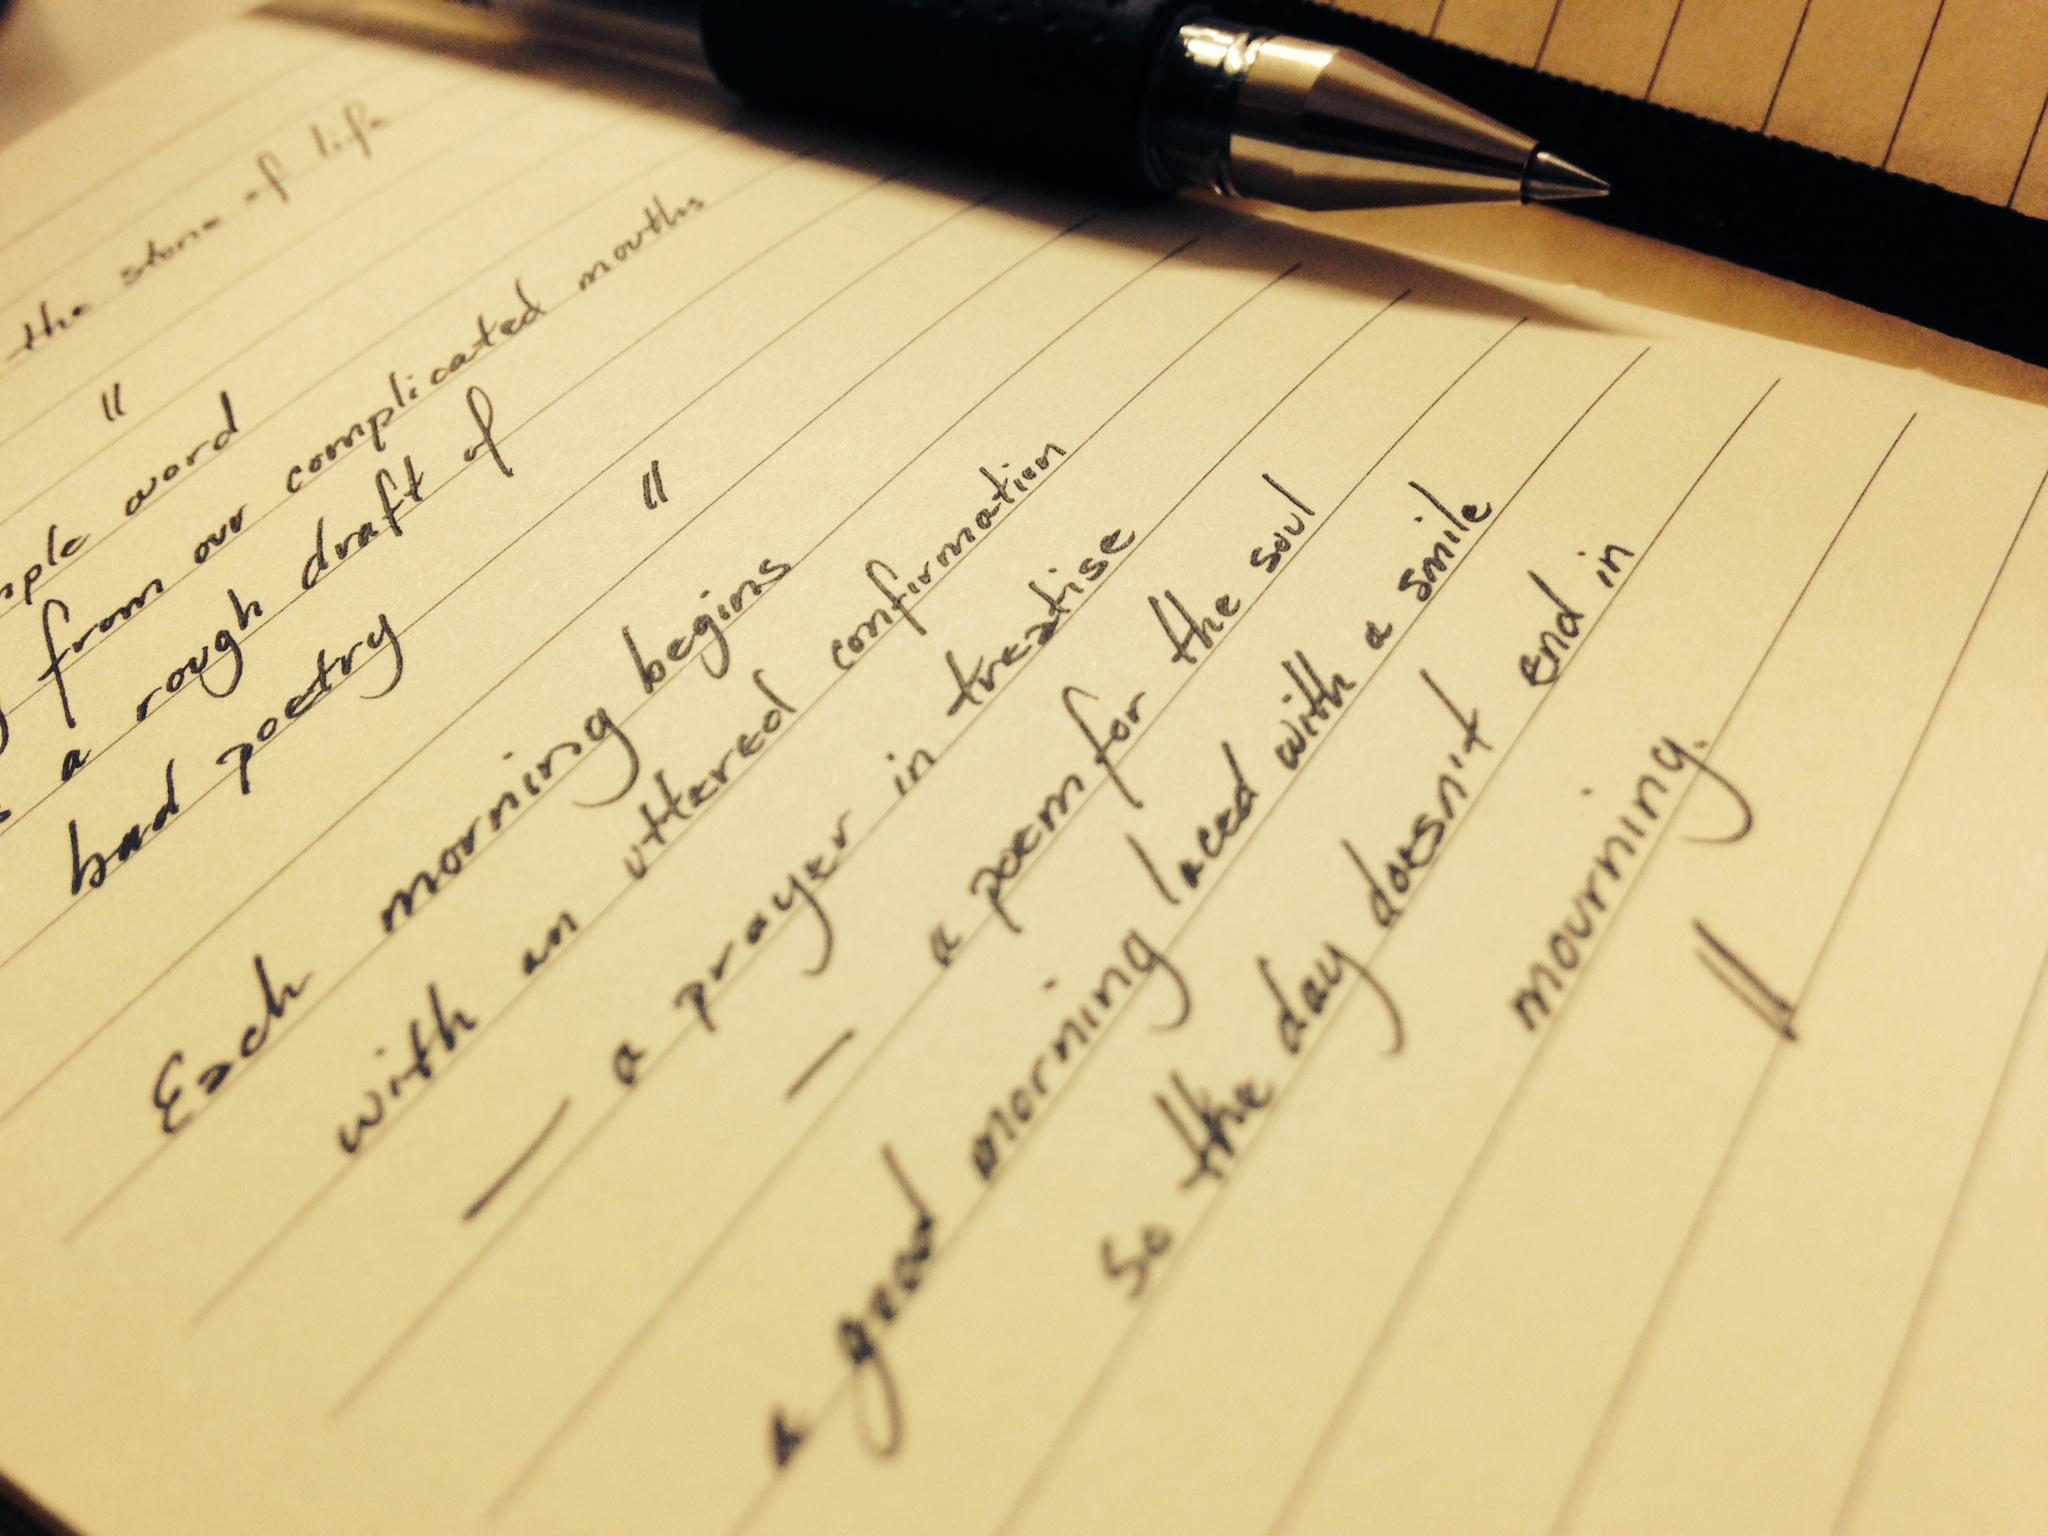 the stone of life
//
word
from our complicated mouths
a rough draft of
bad poetry
//
Each morning begins
with an uttered confirmation
— a prayer in treatise
— a poem for the soul
a good morning laced with a smile
so the day doesn't end in
mourning.
//